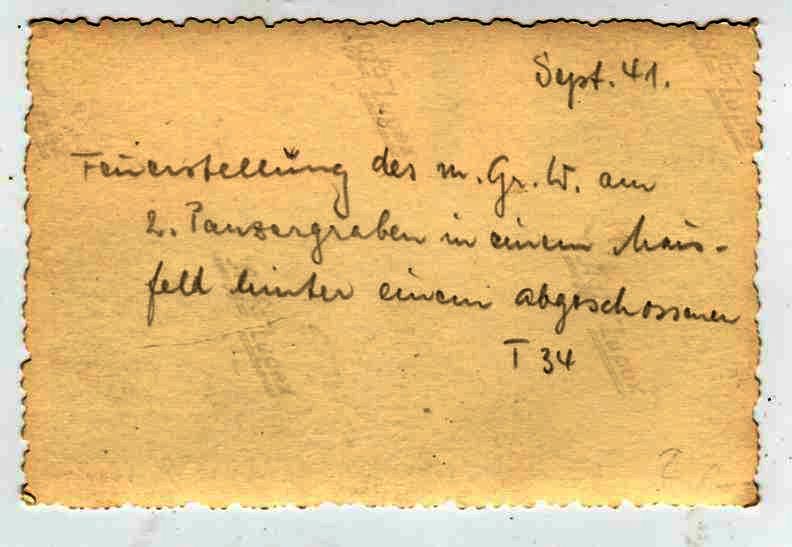 Sept. 41.
Feuerstellung des m. Gr. W. am
2. Panzergraben in einem Mais-
feld hinter einem abgeschossenen
T 34